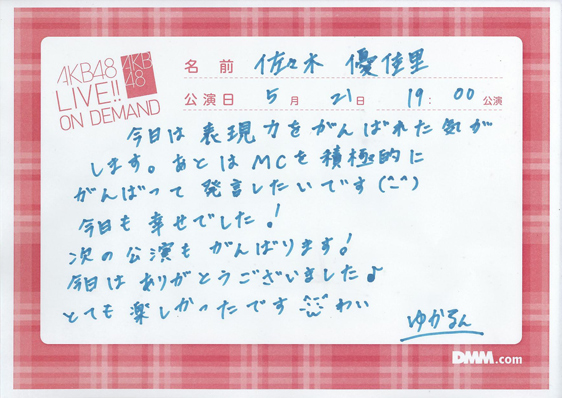 AKB48
LIVE!!
ON DEMAND
AKB
48
名前 佐々木 優佳里
公演日 5月 21日 19:00公演
今日は 表現力をがんばれた気が
します。あとは MCを 積極的に
がんばって 発言したいです(^-^)
今日も 幸せでした!
次の公演も がんばります!
今日は ありがとうございました♪
とても 楽しかったです わい
ゆかるん
DMM.com